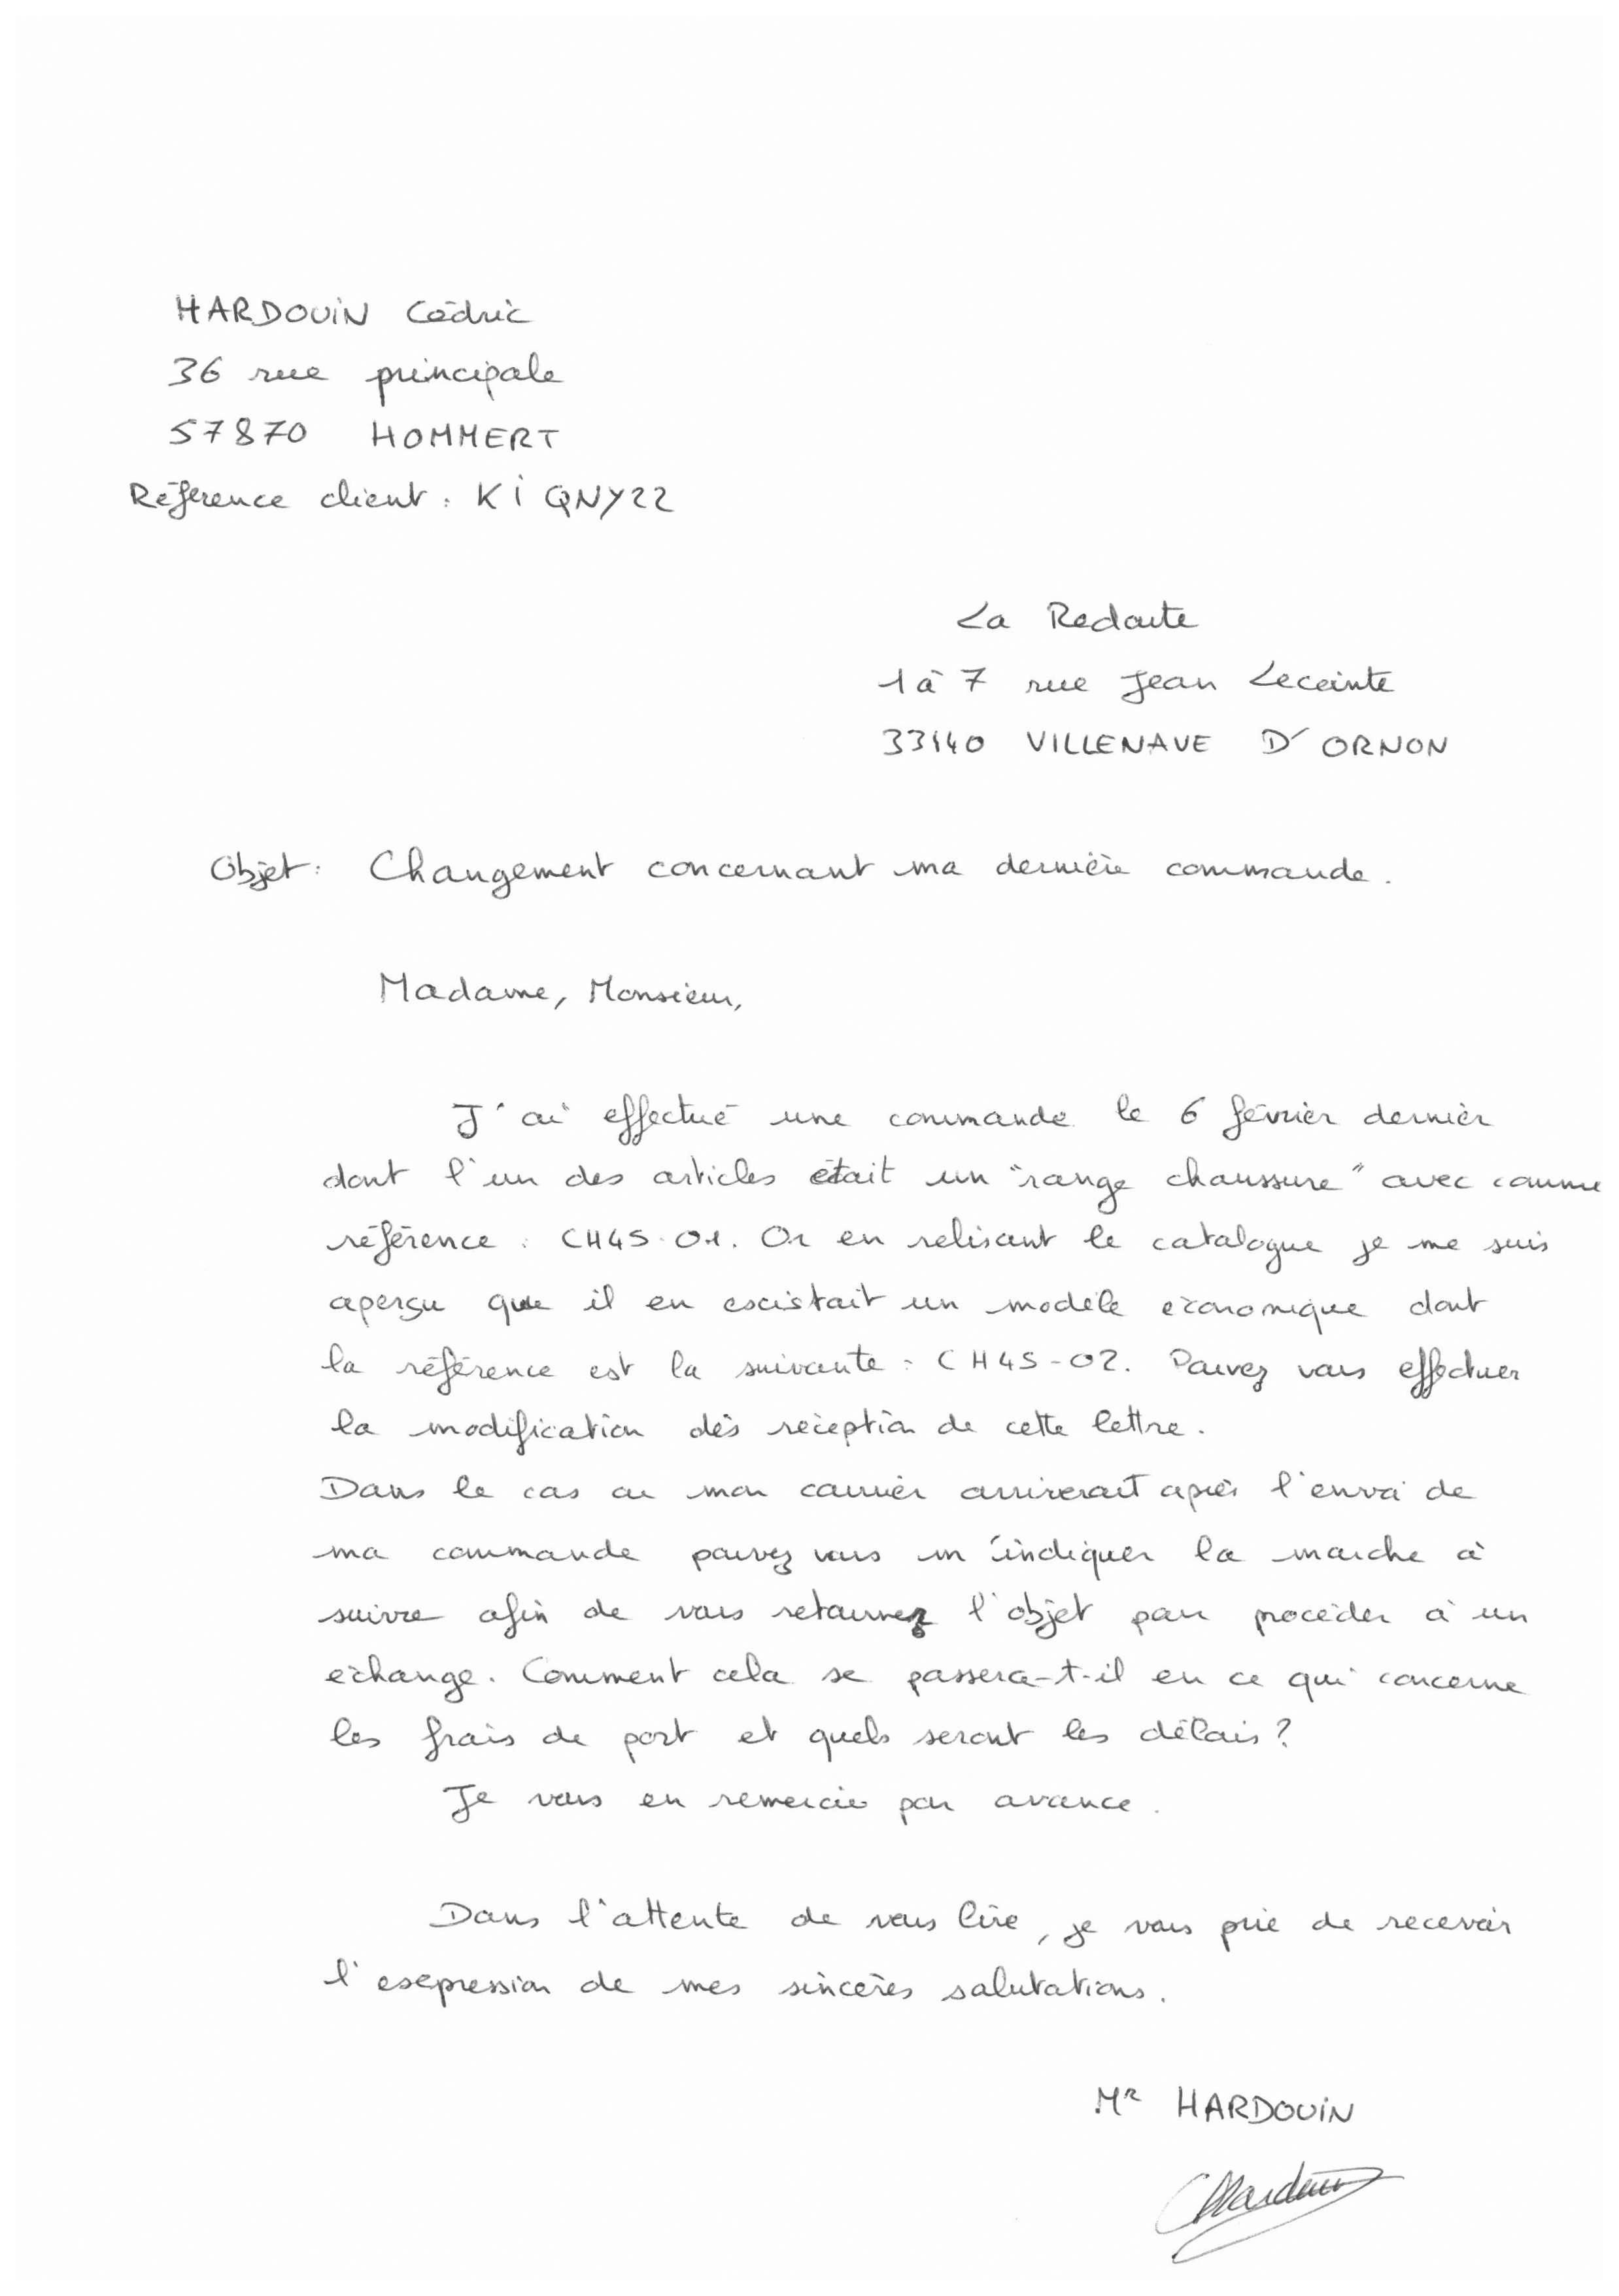 HARDOUIN Cédric
36 rue principale
57870 HOMMERT
Référence client : KIQNY22
La Redoute
1 à 7 rue Jean Lecointe
33140 VILLENAVE D'ORNON
Objet : Changement concernant ma dernière commande.
Madame, Monsieur,
J'ai effectué une commande le 6 février dernier
dont l'un des articles était un "range chaussure" avec comme
référence : CH45-01. Or en relisant le catalogue je me suis
aperçu que il en existait un modèle économique dont
la référence est la suivante : CH45-02. Pouvez vous effectuer
la modification dès réception de cette lettre.
Dans le cas ou mon courrier arriverait après l'envoi de
ma commande pouvez vous m'indiquer la marche à
suivre afin de vous retourner l'objet pour procéder à un
échange. Comment cela se passera-t-il en ce qui concerne
les frais de port et quels seront les délais ?
Je vous en remercie par avance.
Dans l'attente de vous lire, je vous prie de recevoir
l'expression de mes sincères salutations.
Mr HARDOUIN
CHardouin